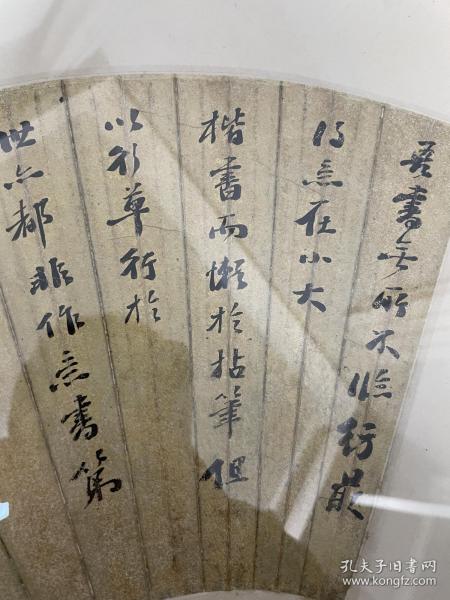 吾書無所不臨仿最
得意在小大
楷書而懶於拈筆但
以行草行於
世亦都非作意書第
孔夫子旧书网
www.kongfz.com